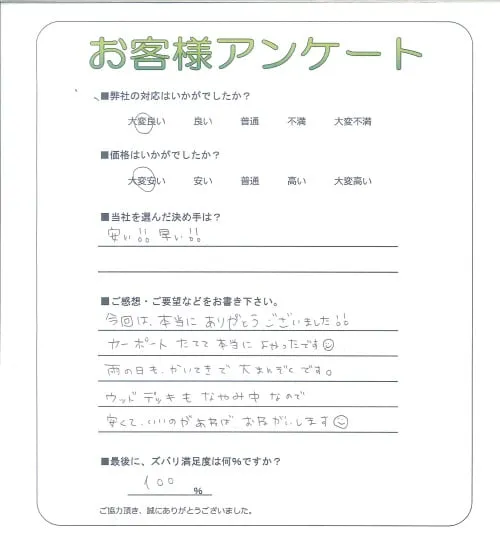 お客様アンケート
■弊社の対応はいかがでしたか？
大変良い 良い 普通 不満 大変不満
■価格はいかがでしたか？
大変安い 安い 普通 高い 大変高い
■当社を選んだ決め手は？
安い!! 早い!!
■ご感想・ご要望などをお書き下さい。
今回は、本当に ありがとう ございました!!
カーポート たてて 本当に よかったです☺
雨の日も、かいてきで 大まんぞくです。
ウッドデッキも なやみ中 なので
安くて、いいのがあれば おねがいします☺
■最後に、ズバリ満足度は何%ですか？
100 %
ご協力頂き、誠にありがとうございました。